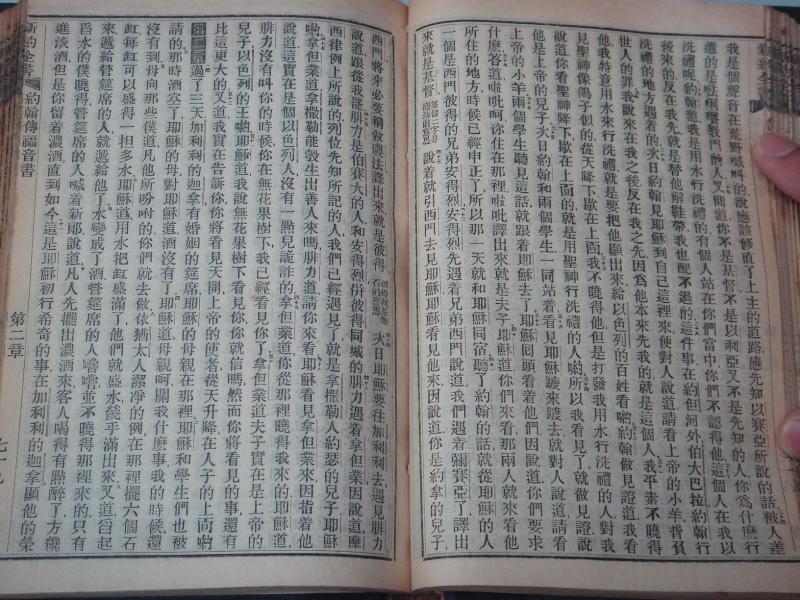 我是個聲音在荒野喊叫的說應該修直了上主的道路應先知以賽亞所說的話被人差
道的是法利賽教門的人又問他說你不是基督不是以利亞又不是先知的人你為什麼行
洗禮呢約翰道我是用水行洗禮的有個人站在你們當中你們不認得他這個人在我以
後來的反在我先就是替他解鞋帶我也配不過的這件事在約但河外伯大巴拉約翰行
洗禮的地方遇着的次日約翰見耶穌到自己這裡來便對人說道請看上帝的小羊背負
世人的罪我說來在我之後反在我之先因為他本來先我的就是這個人我平素不曉得
他我特意用水來行洗禮就是要把他顯出來給以色列的百姓看喲約翰做見證道我看
見聖神像鴿子似的從天降下歇在上面我不曉得他但是打發我用水行洗禮的人對我
說道你看見聖神降下歇在上面的就是用聖神行洗禮的人喲所以我看見了就做見證說
他是上帝的兒子次日約翰和兩個學生一同站着看見耶穌踱來踱去就對人說道請看
上帝的小羊兩個學生聽見這話就跟着耶穌去了耶穌回頭看着他們因說道你們要求
什麼答道啦吡呵你住在那裡啦吡譯出來就是夫子耶穌道你們來看那兩人就來看他
所住的地方時候已經申正了所以那一天就和耶穌同宿聽了約翰的話就從耶穌的人
一個是西門彼得的兄弟安得烈安得烈先遇着兄弟西門說道我們遇着彌賽亞了譯出
來就是基督 說着就引西門去見耶穌耶穌看見他來因說道你是約拿的兒子
西門將來必要稱做磯法譯出來就是彼得 次日耶穌要往加利利去遇見腓力
說道跟從我罷腓力是伯賽大的人和安得烈併彼得同城的腓力遇着拿但業因說道摩
西律例上所說的列位先知所記的人我們已經遇見了就是拿撒勒人約瑟的兒子耶穌
喲拿但業道拿撒勒能彀生出善人來嗎腓力道請你來看耶穌看見拿但業來因指着他
說道這實在是個以色列人沒有一點兒詭詐的拿但業道你從那裡曉得我來的耶穌道
腓力沒有叫你的時候你在無花果樹下我已經看見你了拿但業道夫子實在是上帝的
兒子以色列的王喲耶穌道我說無花果樹下看見你你就信嗎然而你將看見的事還有
比這更大的又道我實在告訴你你將看見天開上帝的使者從天升降在人子的上面喲
第二章過了三天加利利的迦拿有婚姻的筵席耶穌的母親在那裡耶穌和學生們也被
請的那時酒空了耶穌的母對耶穌道酒沒有了耶穌道母親呵關我什麼事我的時候還
沒有到母向那些僕道凡他所吩咐的你們就去做依猶太人潔凈的例在那裡擺六個石
缸每缸可以盛得一担多水耶穌道用水把缸盛滿了他們就盛水幾乎滿出來又道舀起
來送給管筵席的人就遞給他了水變成了酒管筵席的人嘗嘗並不曉得那裡來的只有
舀水的僕曉得管筵席的人喊着新郎說道凡人先擺出濃酒來客人喝得有點醉了方纔
進淡酒但是你留着濃酒直到如今這是耶穌初行希奇的事在加利利的迦拿顯他的榮
新約全書
約翰傳福音書
第二章